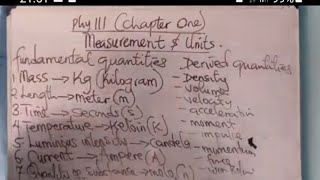 Phy 111 (Chapter One)
Measurement & Units.
Fundamental quantities
1. Mass → Kg (kilogram)
2. Length → meter (m)
3. Time → Seconds (s)
4. Temperature → Kelvin (K)
5. Luminous intensity → Candela
6. Current → Ampere (A)
7. substance → mole
Derived quantities
- Density
- volume
- velocity
- acceleration
- moment
- impulse
- momentum
- force